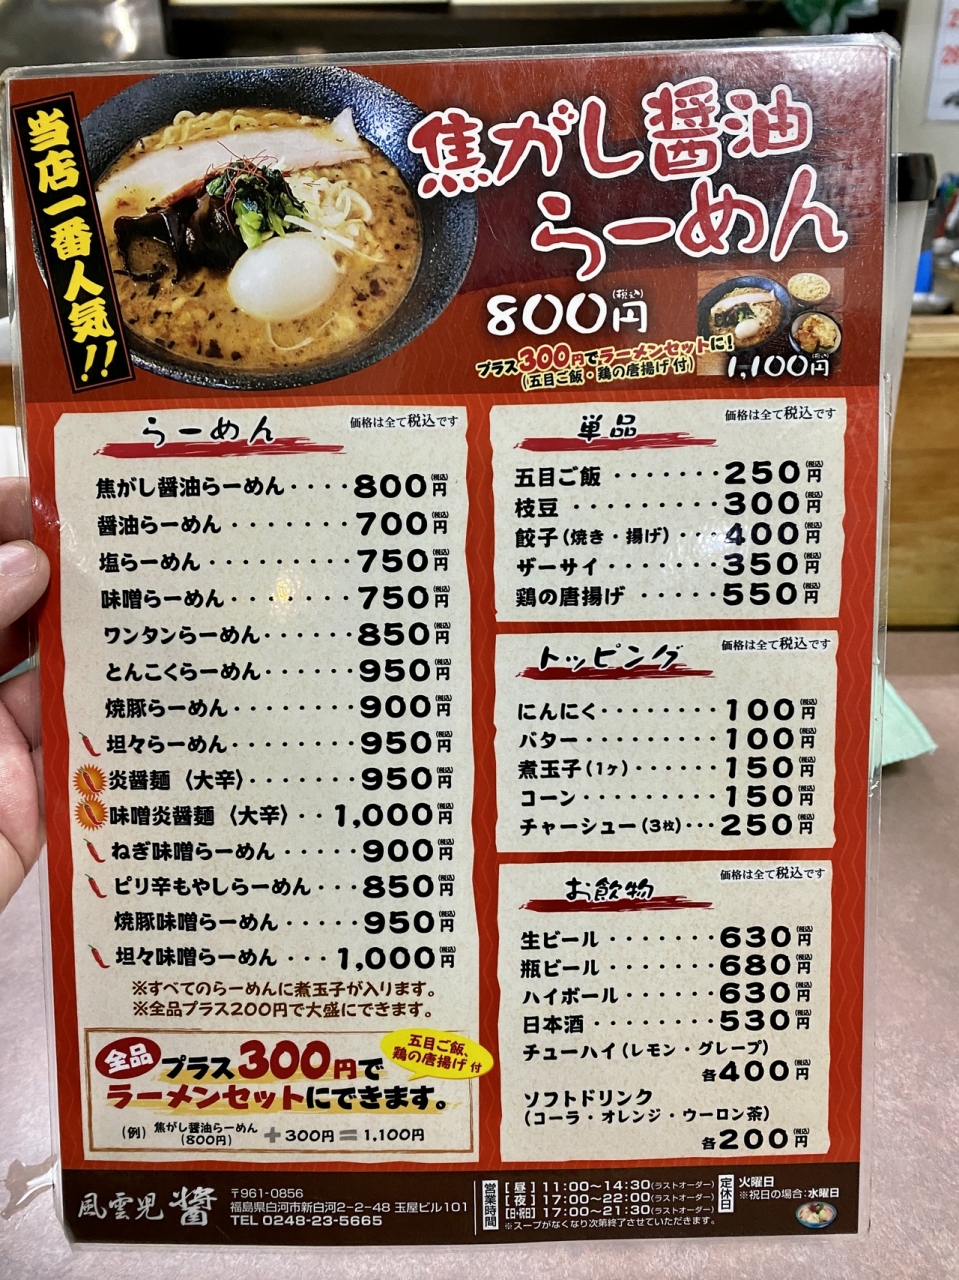 当店一番人気!!
焦がし醤油
らーめん
800円(税込)
プラス300円でラーメンセットに!
(五目ご飯・鶏の唐揚げ付)
1,100円(税込)
らーめん
価格は全て税込です
焦がし醤油らーめん····800円(税込)
醤油らーめん·······700円(税込)
塩らーめん········750円(税込)
味噌らーめん·······750円(税込)
ワンタンらーめん······850円(税込)
とんこくらーめん······950円(税込)
焼豚らーめん·······900円(税込)
坦々らーめん·······950円(税込)
炎醤麺〈大辛〉······950円(税込)
味噌炎醤麺〈大辛〉··1,000円(税込)
ねぎ味噌らーめん·····900円(税込)
ピリ辛もやしらーめん···850円(税込)
焼豚味噌らーめん·····950円(税込)
坦々味噌らーめん···1,000円(税込)
※すべてのらーめんに煮玉子が入ります。
※全品プラス200円で大盛にできます。
全品プラス300円で
五目ご飯、
鶏の唐揚げ付
ラーメンセットにできます。
(例) 焦がし醤油らーめん(800円)+300円=1,100円
単品
価格は全て税込です
五目ご飯·······250円(税込)
枝豆·········300円(税込)
餃子(焼き・揚げ)···400円(税込)
ザーサイ·······350円(税込)
鶏の唐揚げ······550円(税込)
トッピング
価格は全て税込です
にんにく·······100円(税込)
バター········100円(税込)
煮玉子(1ヶ)·····150円(税込)
コーン········150円(税込)
チャーシュー(3枚)···250円(税込)
お飲物
価格は全て税込です
生ビール·······630円(税込)
瓶ビール·······680円(税込)
ハイボール······630円(税込)
日本酒········530円(税込)
チューハイ(レモン・グレープ)
各400円(税込)
ソフトドリンク
(コーラ・オレンジ・ウーロン茶)
各200円(税込)
風雲児 醤
〒961-0856
福島県白河市新白河2-2-48 玉屋ビル101
TEL 0248-23-5665
営業時間
[昼]11:00〜14:30(ラストオーダー)
[夜]17:00〜22:00(ラストオーダー)
[日・祝日]17:00〜21:30(ラストオーダー)
※スープがなくなり次第終了させていただきます。
定休日
火曜日
※祝日の場合:水曜日